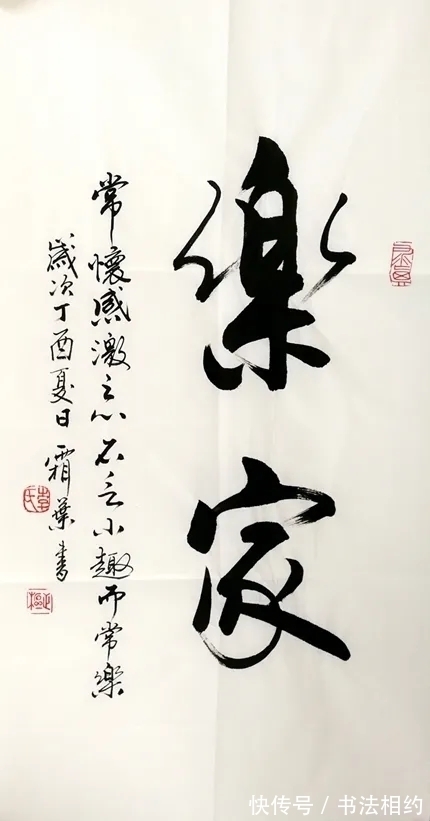 樂家
常懷感激之心不乏小趣而常樂
歲次丁酉夏日 霜葉書
快传号 / 书法相约